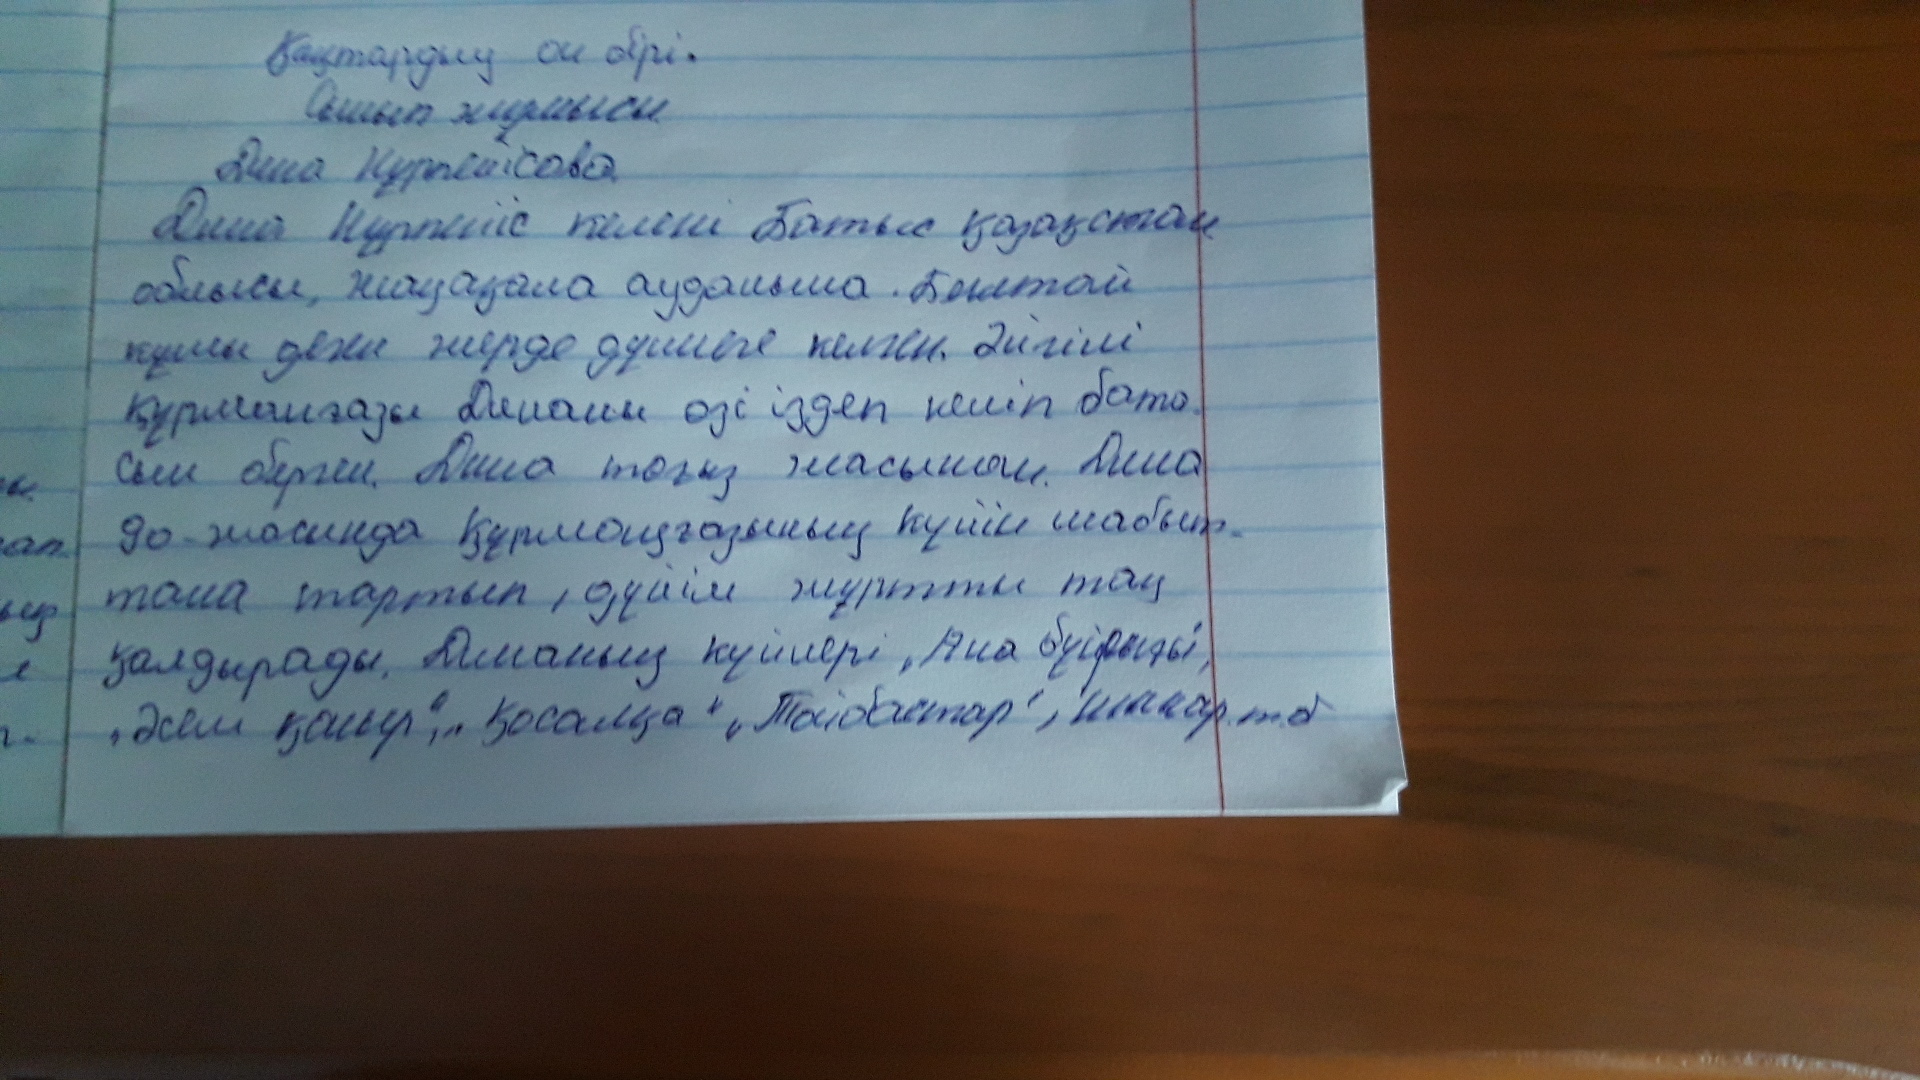 Қаңтардың он бірі.
Сынып жұмысы
Дина Нұрпейісова
Дина Нұрпейіс келені Батыс Қазақстан
облысы, жаңақала ауданына. Бекетай
құмы деген жерде дүниеге келген. Әйгілі
Құрманғазы Динаны өзі іздеп келіп бата.
сын берген. Дина тоғыз жасынан. Дина
90-жасында Құрманғазының күйін шабыт-
тана тартып, дүйім жұртты таң
қалдырады. Динаның күйлері „Ана бұйрығы",
„Әсем қоңыр", „Қосалқа" „Тойбастар",
т.б